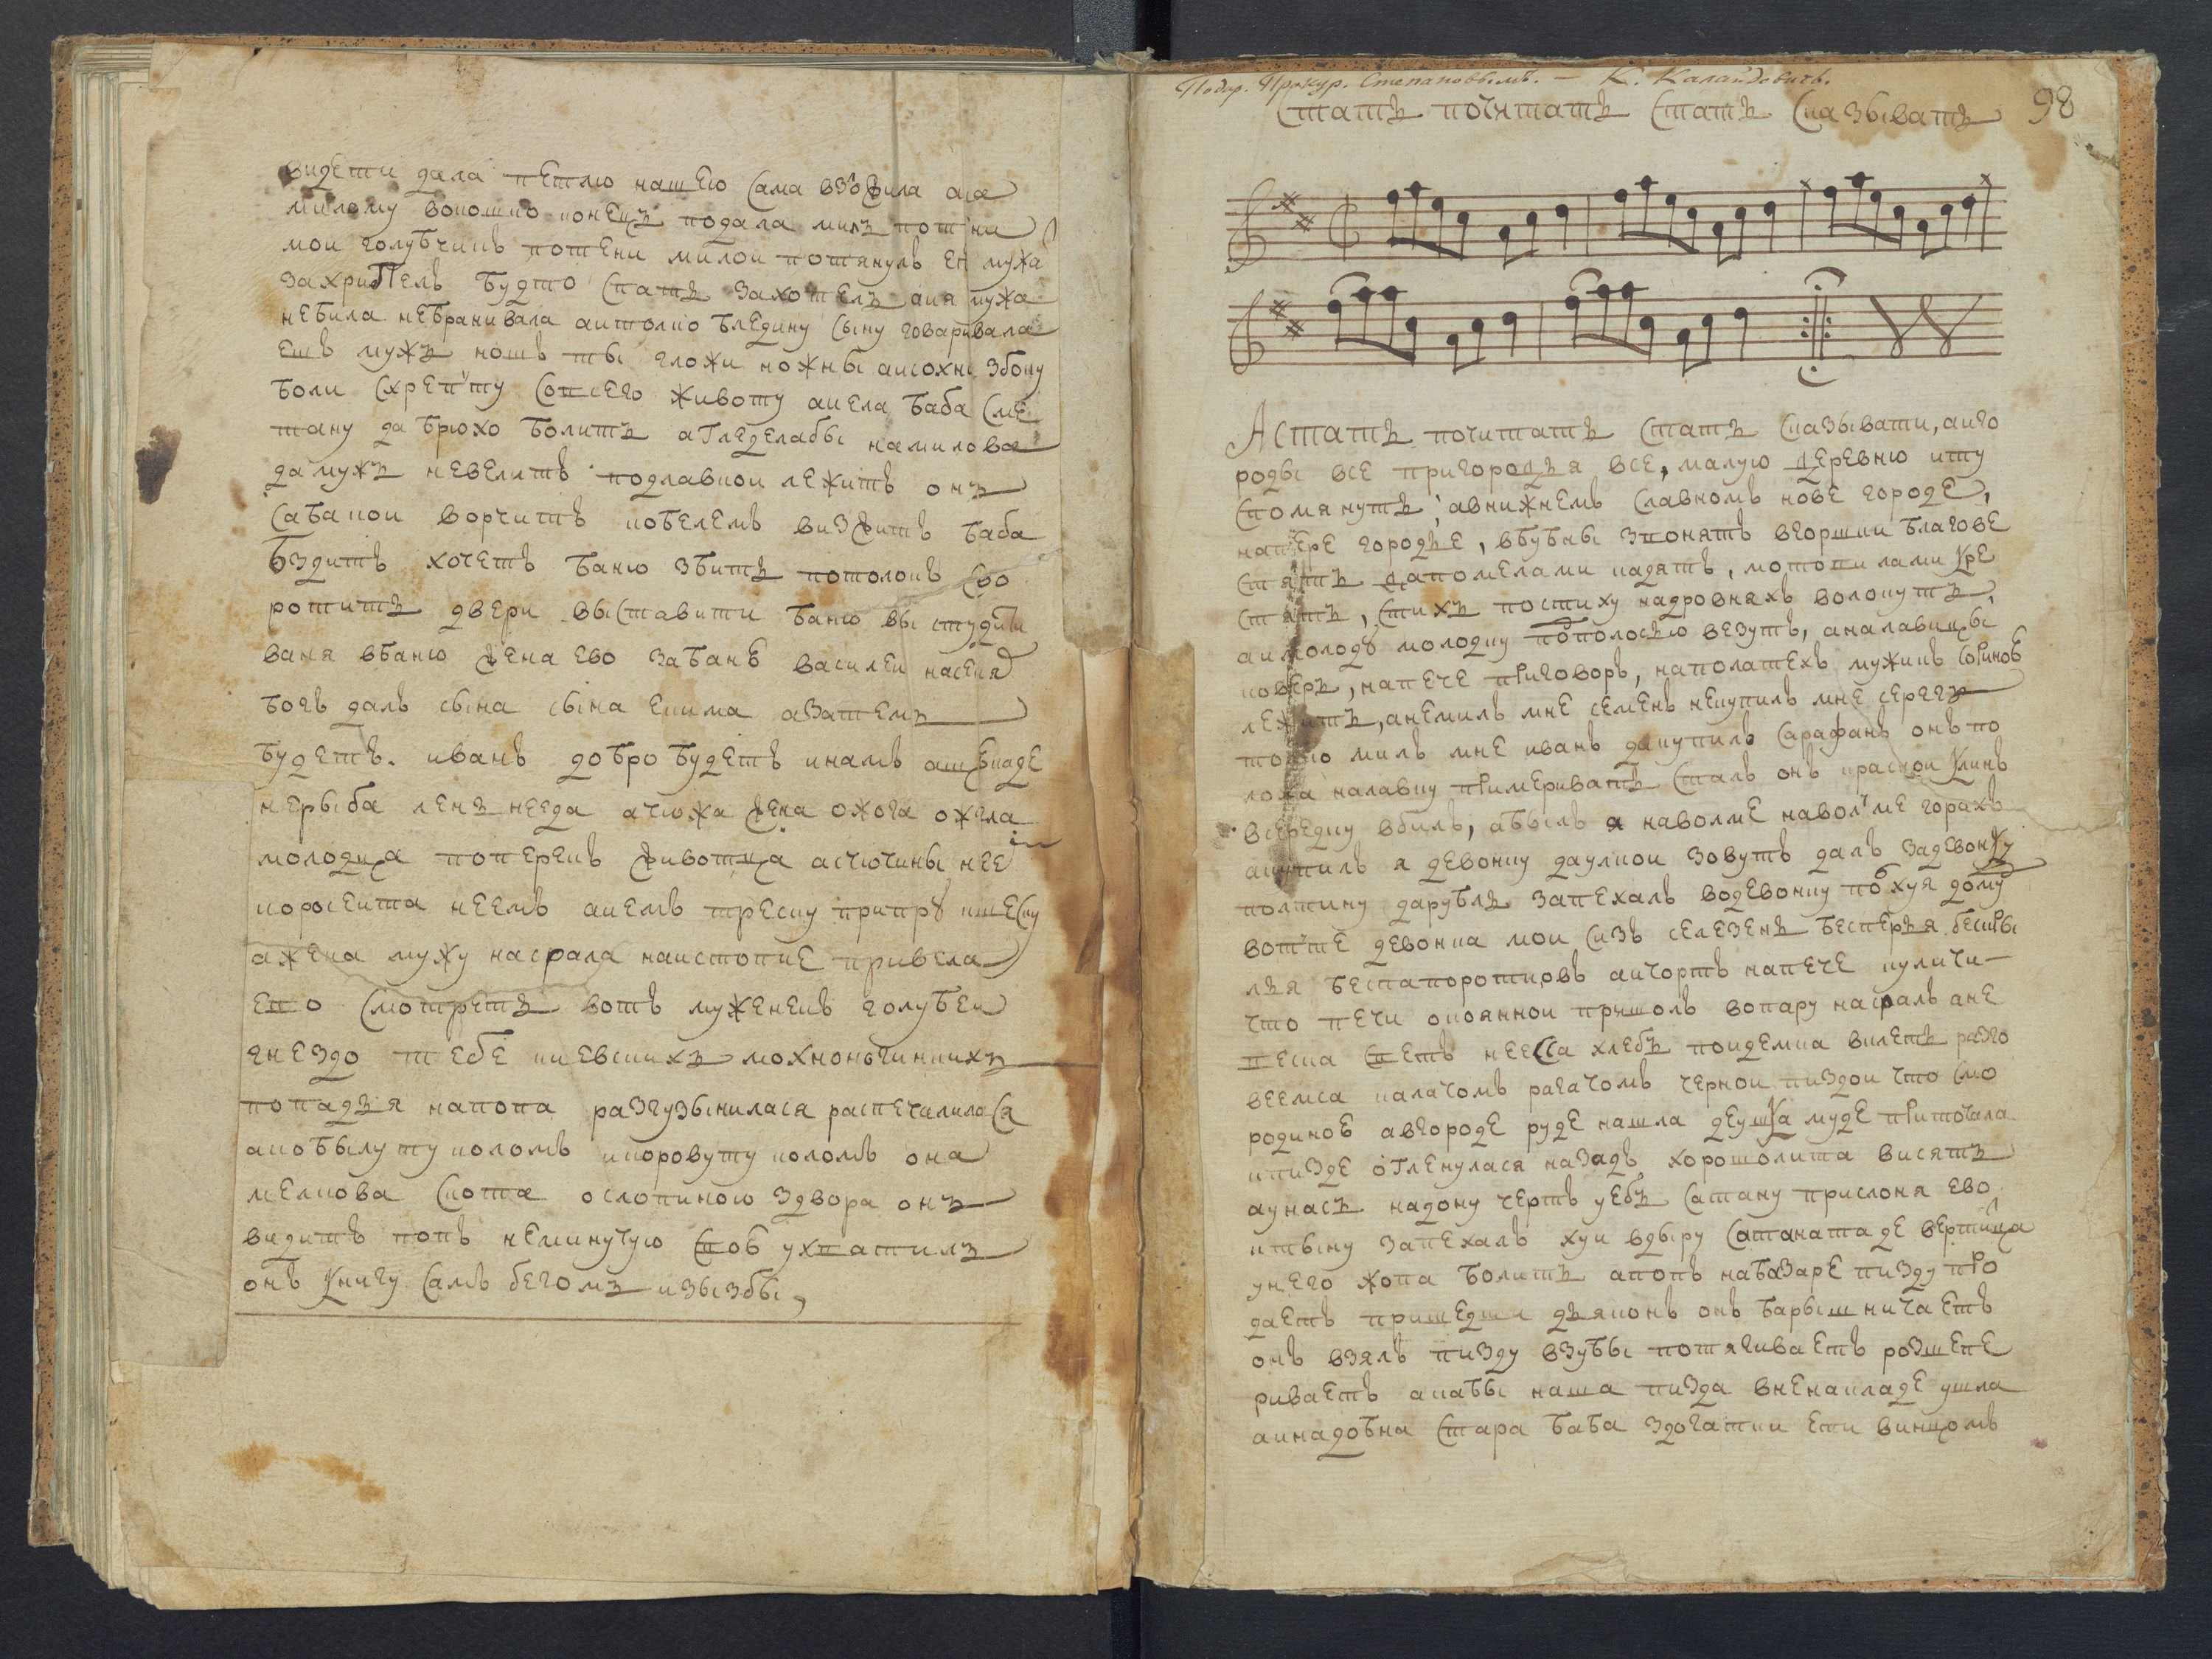 видети дала петлю нашею сама взложила ана
милому вокошко конецъ подала милъ потяни
мои голубчикъ потени милои потянулъ ен мужа
захрипелъ будто спать захотелъ аия мужа
небила небранивала аитолко бледину сыну говаривала
ешь мужъ ношъ ты гложи ножны аисохни збоку
боли схрепту сопсего животу аиела баба сме
тану да брюхо болитъ агледелабы намилова
дамужъ невелитъ подлавкои лежитъ онъ
сабакои ворчитъ кобелемъ визжитъ баба
бздитъ хочетъ баню збитъ потолокъ сво
ротитъ двери выставити баню выстудити
ваня вбаню жена ево забанѣ василеи насеня
богъ далъ сына сына екима азатемъ
будетъ. иванъ добро будетъ инамъ
нерыба ленъ нееда ачюжа жена ожога ожгла
молодица поперекъ животица асчючины нее
поросента неемъ аиемъ треску припру ишеску
ажена мужу насрала наистопке привела
ево смотреть вотъ муженекъ голубеи
гнездо тебе киевскихъ мохноногинкихъ
попадья напопа разгузынилася распечалилася
акобылуту коломъ икоровуту коломъ она
мелкова скота ослопиною здвора онъ
видитъ попъ неминучую скоб ухватилъ
онъ книгу самъ бегомъ изызбы,
Подар. Прокур. Степановымъ. — К. Калайдовичъ.
Стать почитать стать сказывать 98
Астать почитать стать сказывати, аиго
роды все пригородья все, малую деревню иту
спомянуть, авнижнемъ славномъ нове городе,
наперегородье, вбубны звонятъ вгоршки благове
стятъ дапомелами кадятъ, мотовилами кре
стятъ, стихъ постиху надровняхъ волокутъ,
аимолоду молодку пополосью везутъ, аналавицы
коверъ, напече приговоръ, наполатехъ мужикъ сориновѣ
лежитъ, анемилъ мне семенъ некупилъ мне серегъ
толко милъ мне иванъ дакупилъ сарафанъ онъ по
ложа налавку примериватъ сталъ онъ краснои клинъ
всередку вбилъ, абылъ я наволме наволме горахъ
акупилъ я девонку даулкои зовутъ далъ задевонку
полтину дарубль запехалъ водевонку по хуя дому
вотте девонка мои сизъ селезень бесперья бескры
лья беспапоротковъ аичортъ напече куличи-
что печи окояннои пришолъ вопару насралъ ане
песиа спетъ нееса хлебъ поидемка вилетъ разго
веемса калачомъ рагачомъ чернои пиздои что смо
родиновѣ авгороде руде нашла деушка муде приточала
кпизде огленулася назадъ хорошолита висятъ
аунасъ надону чертъ уебъ сатану прислоня ево
ктыну запехалъ хуи вдыру сатанатаде вертица
унего жопа болитъ апопъ набазаре пизду про
даетъ пришедши дьяконъ онъ барышничаетъ
онъ взялъ пизду взубы потягиваетъ рошепе
риваетъ акабы наша пизда вненакладе ушла
аинадобна стара баба здогатки ети винцомъ